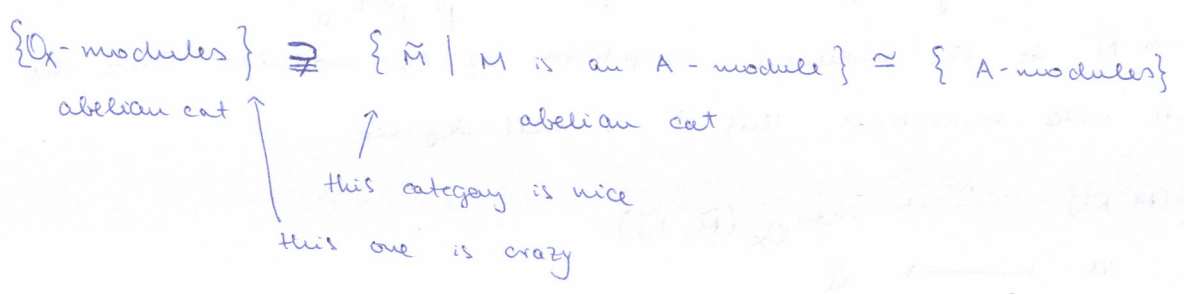 {O_X-modules} ⊋ { M̃ | M is an A-module} ≃ { A-modules}
abelian cat abelian cat
this category is nice
this one is crazy